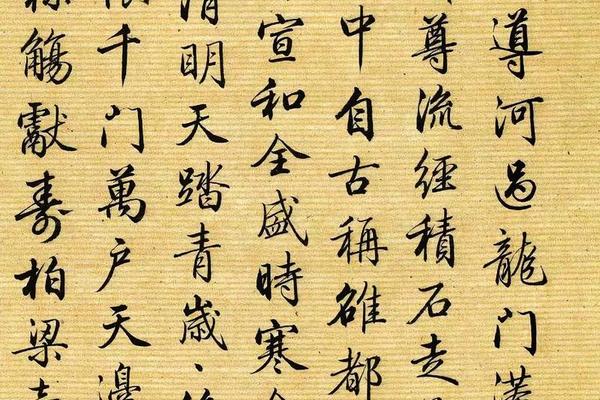 導河過龍門
尊流經積石走
中自古稱雄都
宣和全盛時寒
清明天踏青歲、
千門萬戶天邊
觴獻壽柏梁